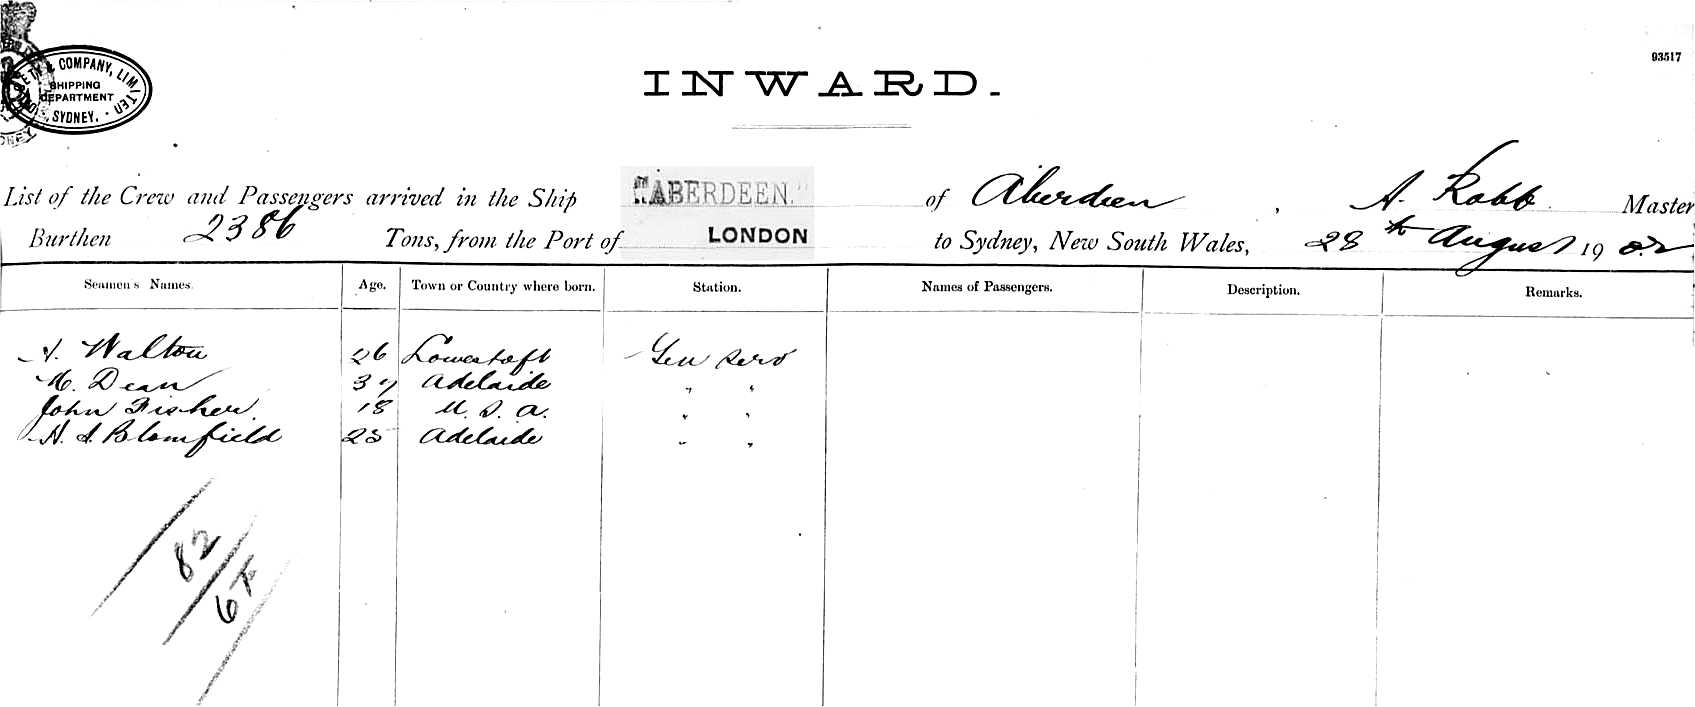 & COMPANY, LIMITED
SHIPPING
DEPARTMENT
SYDNEY.
93517
INWARD.
List of the Crew and Passengers arrived in the Ship "ABERDEEN." of Aberdeen, A. Robb Master
Burthen 2386 Tons, from the Port of LONDON to Sydney, New South Wales, 28th August 1902
Seamen's Names. Age. Town or Country where born. Station. Names of Passengers. Description. Remarks.
Walton 26 Lowestoft Gen Serv
Dean 37 Adelaide " "
John Fisher 18 U.S.A. " "
Blomfield 25 Adelaide " "
82
6